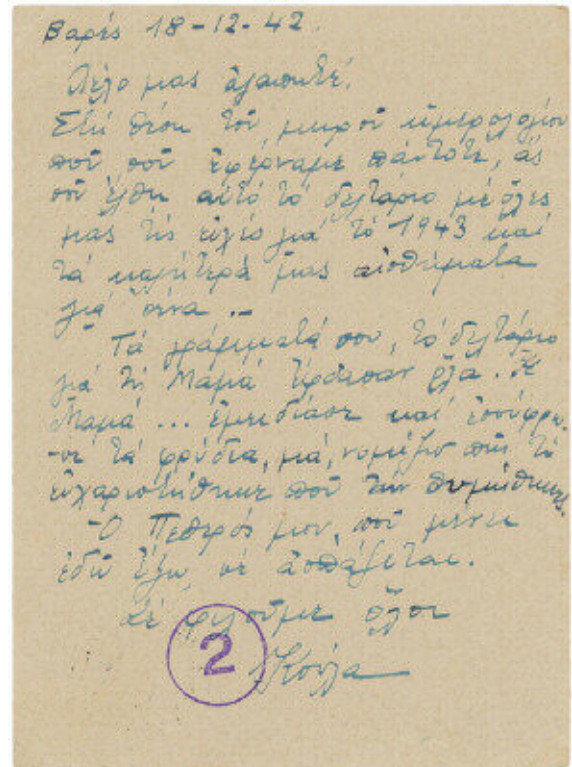 Βαρές 18-12-42.
Λέλο μας ἀγαπητέ,
Στή θέση τοῦ μικροῦ ἡμερολογίου
ποῦ σοῦ ἐφέρναμε πάντοτε, ἄς
σοῦ ἔλθη αὐτό τό δελτάριο μέ ὅλες
μας τίς εὐχές γιά τό 1943 καί
τά καλήτερά μας αἰσθήματα
γιά σένα ..
Τά γράμματά σου, τό δελτάριο
γιά τή Μαμά ὅλα. Ἡ
Μαμά ... ἐμειδίασε καί ἐσούφρω-
-σε τά φρύδια, μά, νομίζω πώς τό
εὐχαριστήθηκε ποῦ τήν θυμήθηκες.
-Ὁ Πεθερός μου, ποῦ μένει
ἐδῶ ἔξω, σέ ἀσπάζεται.
Σέ φιλοῦμε ὅλοι
Κούλα
2